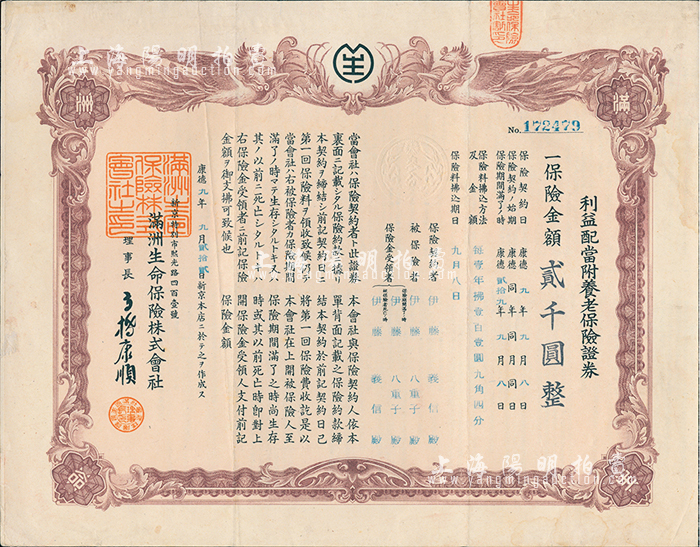 上海陽明拍賣
www.yangmingauction.com
滿
洲
生
命
No. 172479
利益配當附養老保險證券
一保險金額 貳千圓整
保險契約日 康德九年九月八日
保險契約ノ始期 康德同年同月同日
保險期間滿了ノ時 康德貳拾九年九月八日
保險料拂込方法及金額 每壹年拂壹百壹圓九角四分
保險料拂込期日 九月八日
保險契約者 伊藤義信殿
被保險者 伊藤八重子殿
保險金受領者
伊藤八重子殿
伊藤義信殿
當會社ハ保險契約者ト此證券
裏面ニ記載シタル保險約款ニ據リ
本契約ヲ締結シ前記契約日
第一回保險料ヲ領收致候ヲ
當會社ハ右被保險者カ保險期間
滿了ノ時マテ生存シタルトキ又ハ
其ノ以前ニ死亡シタルトキハ
右保險金受領者ニ前記保險
金額ヲ御支拂可致候也
本會社與保險契約人依本
單背面記載之保險約款締
結本契約於前記契約日已
將第一回保險費收訖是以
本會社在上開被保險人至
保險期間滿了之時尚生存
時或其以前死亡時卽對上
開保險金受領人支付前記
保險金額
康德九年九月貳拾貳日新京本店ニ於テ之ヲ作成ス
新京特別市熙光路四百壹號
滿洲生命保險株式會社
理事長
滿洲生命保險株式會社之印
上海陽明拍賣
www.yangmingauction.com